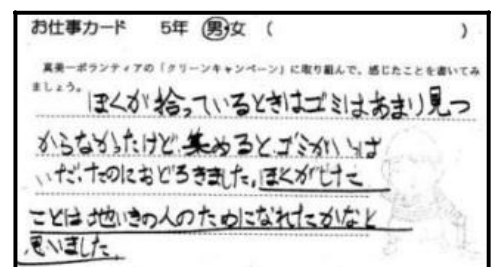 お仕事カード　5年 男・女 (　　　)
真美一ボランティアの「クリーンキャンペーン」に取り組んで、感じたことを書いてみ
ましょう。
ぼくが拾っているときはゴミはあまり見つ
からなかったけど、集めると、ゴミがいっぱ
いだったのにおどろきました。ぼくがした
ことは地いきの人のためになれたかなと
思いました。